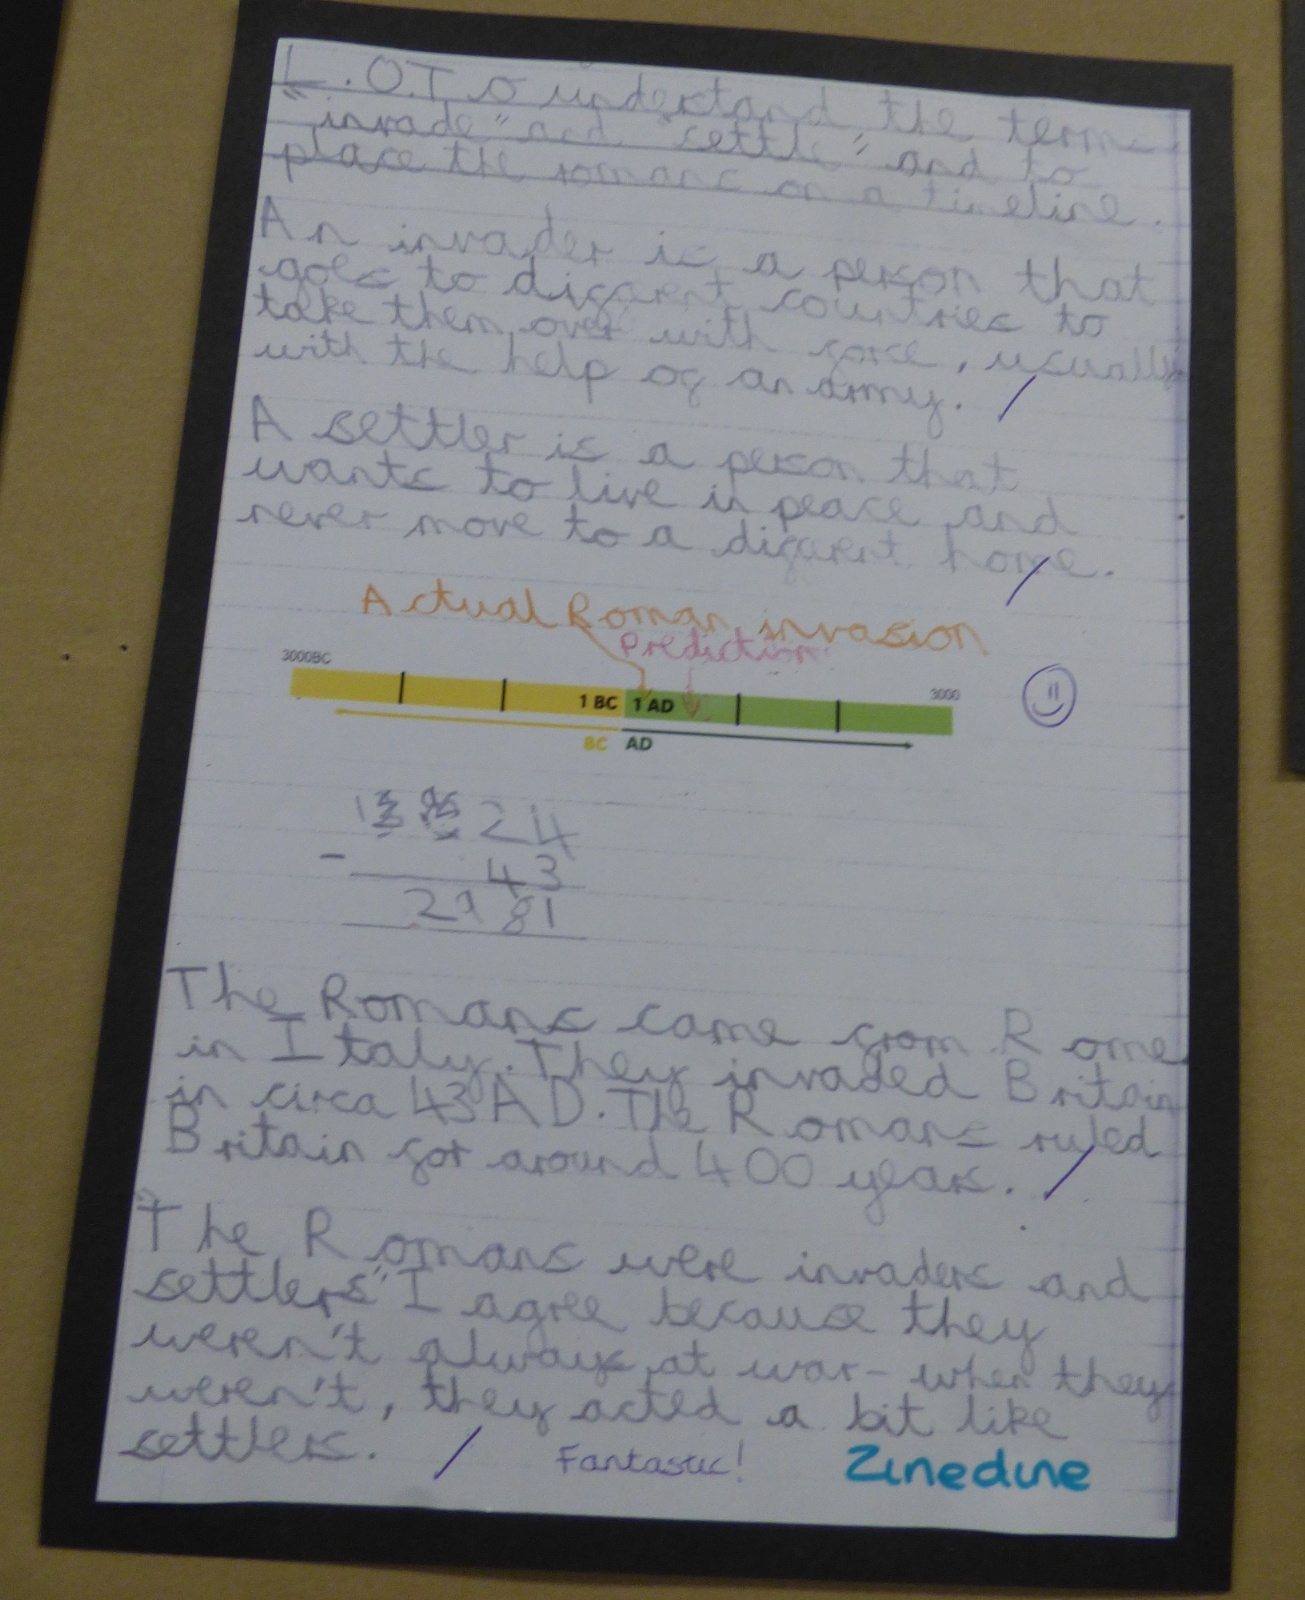 L.O.To understand the term
"invade" and "settle" and to
place the romans on a timeline.
An invader is a person that
goes to digarent countries to
take them over with force, usually
with the help of an army.
A settler is a person that
wants to live in peace and
never move to a digarent home.
Actual Roman invasion
Prediction
3000BC
1 BC 1 AD
3000
BC AD
24
- 43
2981
The Romans came from Rome
in Italy. They invaded Britain
in circa 43AD. The Romans ruled
Britain for around 400 years.
"The Romans were invaders and
settlers" I agree because they
weren't always at war- when they
weren't, they acted a bit like
settlers.
Fantastic!
Zinedine